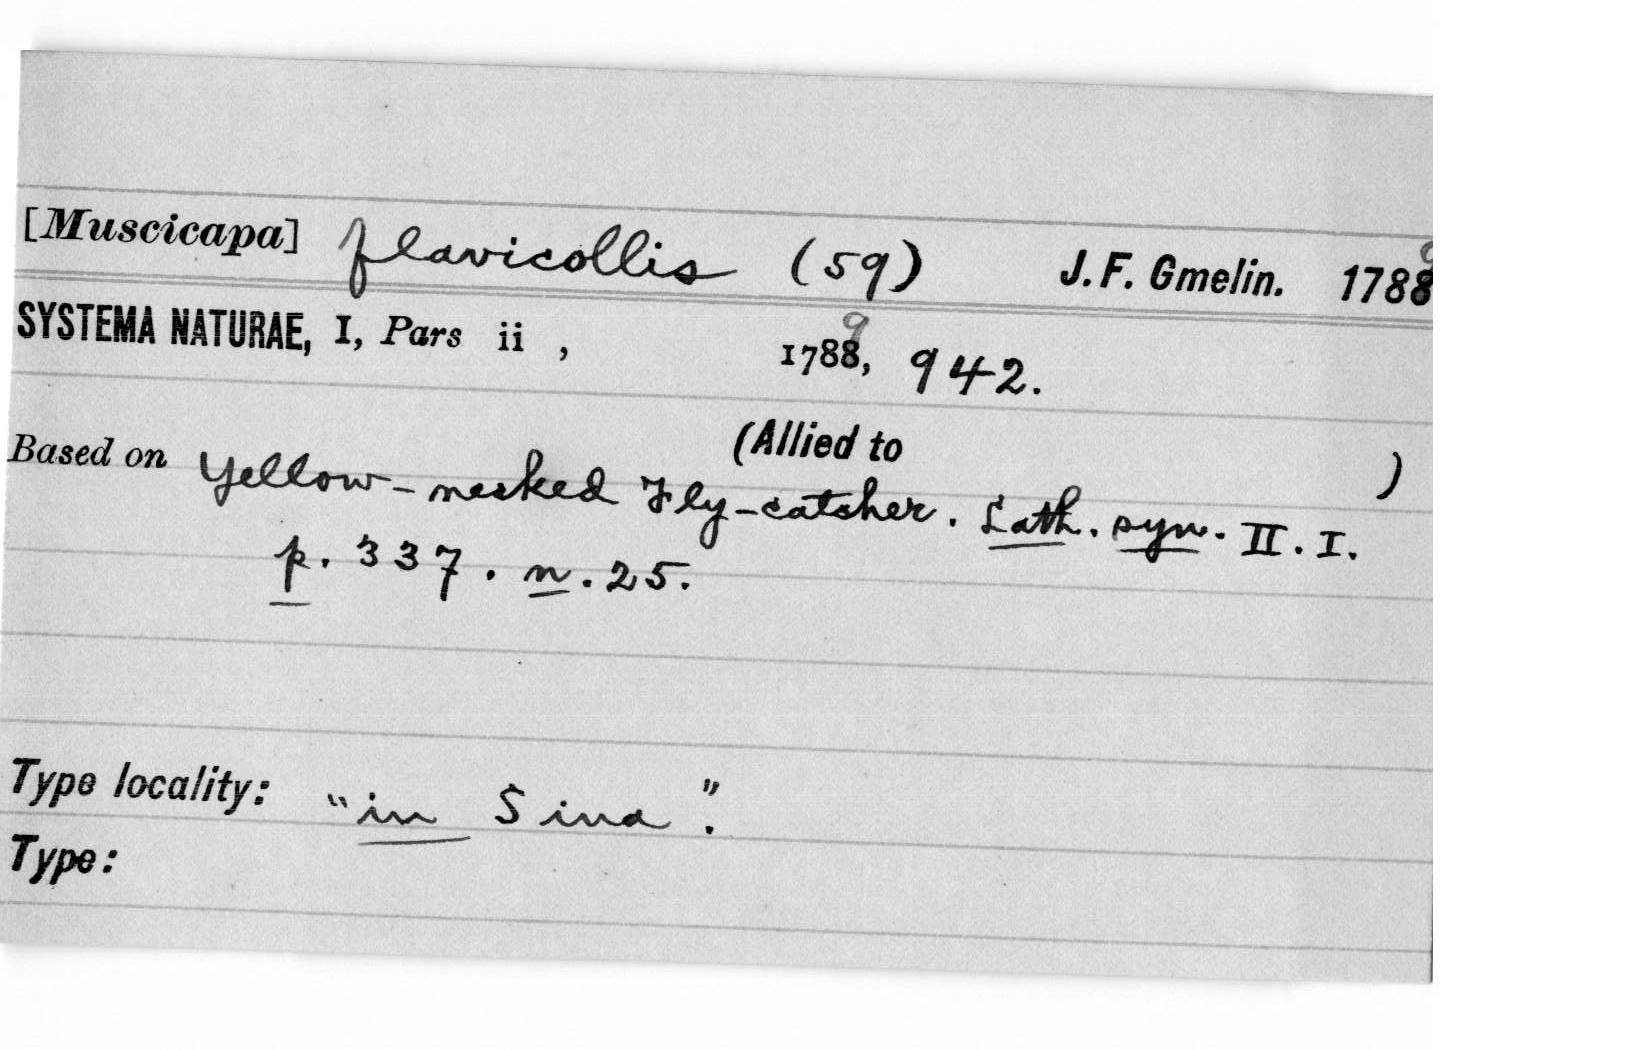 [Muscicapa] flavicollis (59) J. F. Gmelin. 1788 9
SYSTEMA NATURAE, I, Pars ii , 1788, 9 942.
(Allied to )
Based on Yellow-necked Fly-catcher. Lath. syn. II. I.
p. 337. n. 25.
Type locality: "in Sina".
Type: